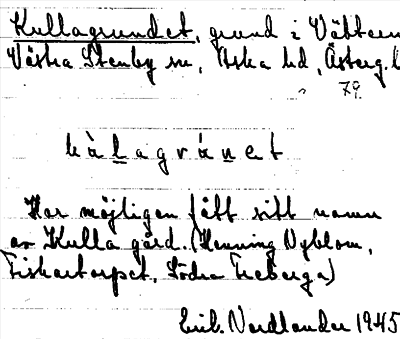 Kullagrundet, grund i Vättern
Västra Stenby sn, Aska hd, Österg. l
79.
kùlagrúnet
Har möjligen fått sitt namn
av Kulla gård. (Henning Nyblom,
Fiskartorpet, Södra Freberga)
Erik Nordlander 1945